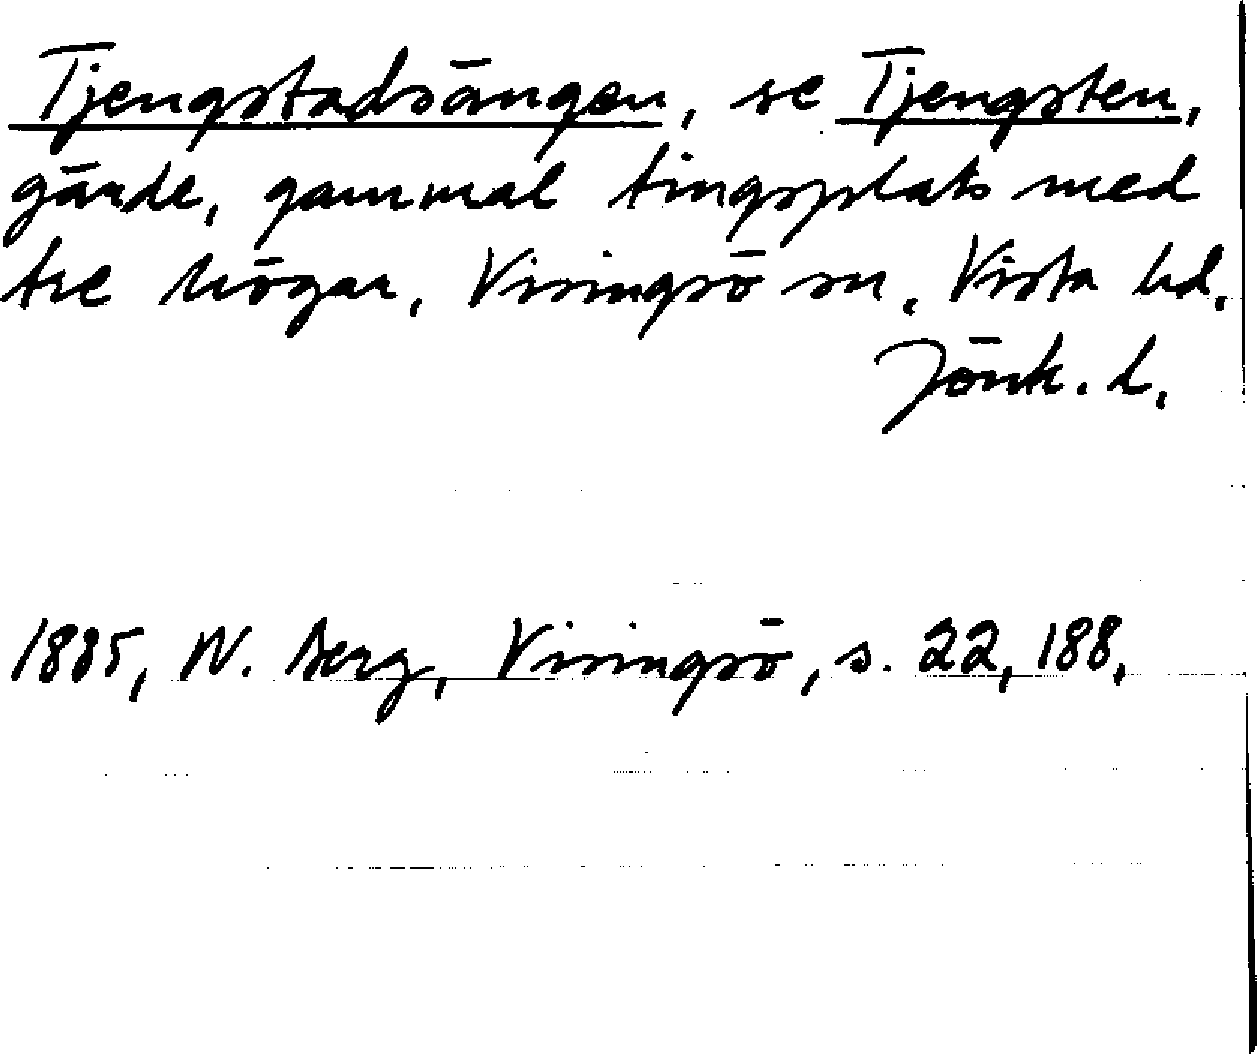 Tjengstadsängen, se Tjengsten,
gärde, gammal tingsplats med
tre högar, Visingsö sn, Vista hd.
Jönk. l.
1885, W. Berg, Visingsö, s. 22, 188.